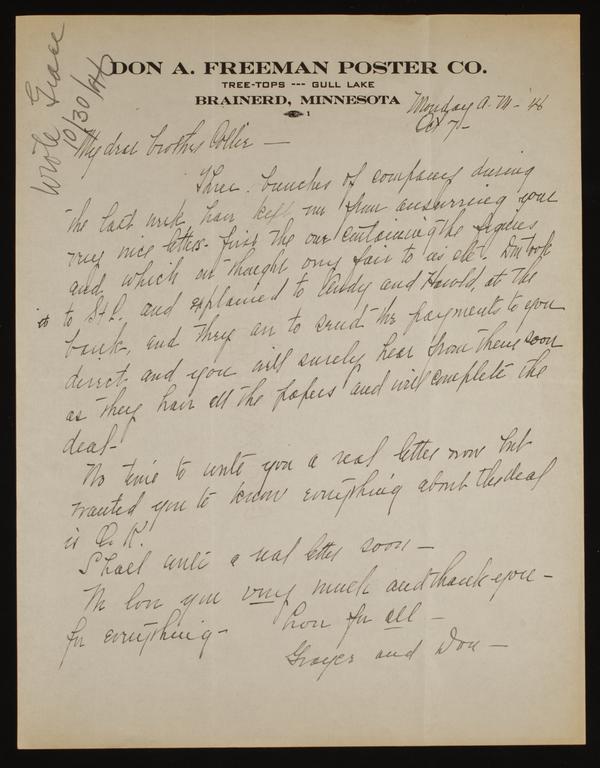 Wrote Grace
10/30/46
DON A. FREEMAN POSTER CO.
TREE-TOPS --- GULL LAKE
BRAINERD, MINNESOTA
1
Monday A.M. -
Oct 7 -
My dear brother Ollie -
Three bunches of company during
the last week have kept me from answering your
very nice letters - first the one containing the figures
and which we thought very fair to us etc. Don took
it to St P, and explained to Andy and Harold, at the
bank, and they are to send the payments to you
direct and you will surely hear from them soon
as they have all the papers and will complete the
deal -
No time to write you a real letter now but
wanted you to know everything about the deal
is O.K.
Shall write a real letter soon -
We love you very much and thank you -
for everything - Love for all -
and Don -